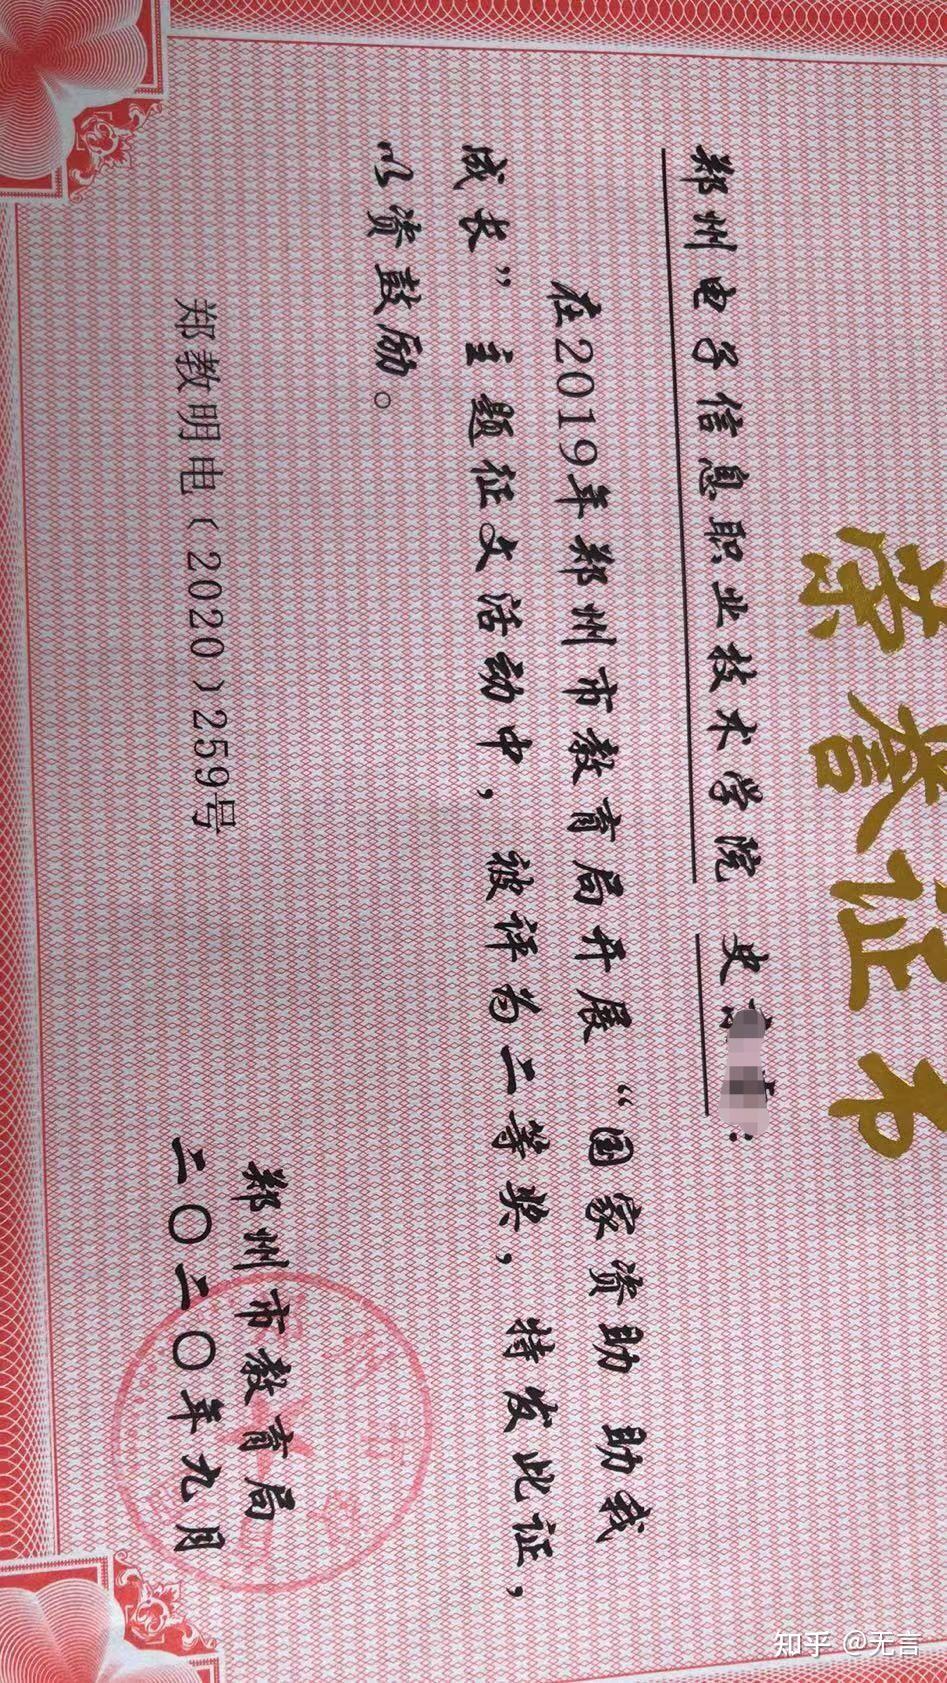 荣誉证书
郑州电子信息职业技术学院 史
在2019年郑州市教育局开展“国家资助 助我
成长”主题征文活动中，被评为二等奖，特发此证，
以资鼓励。
郑教明电〔2020〕259号
郑州市教育局
二〇二〇年九月
知乎 @无言